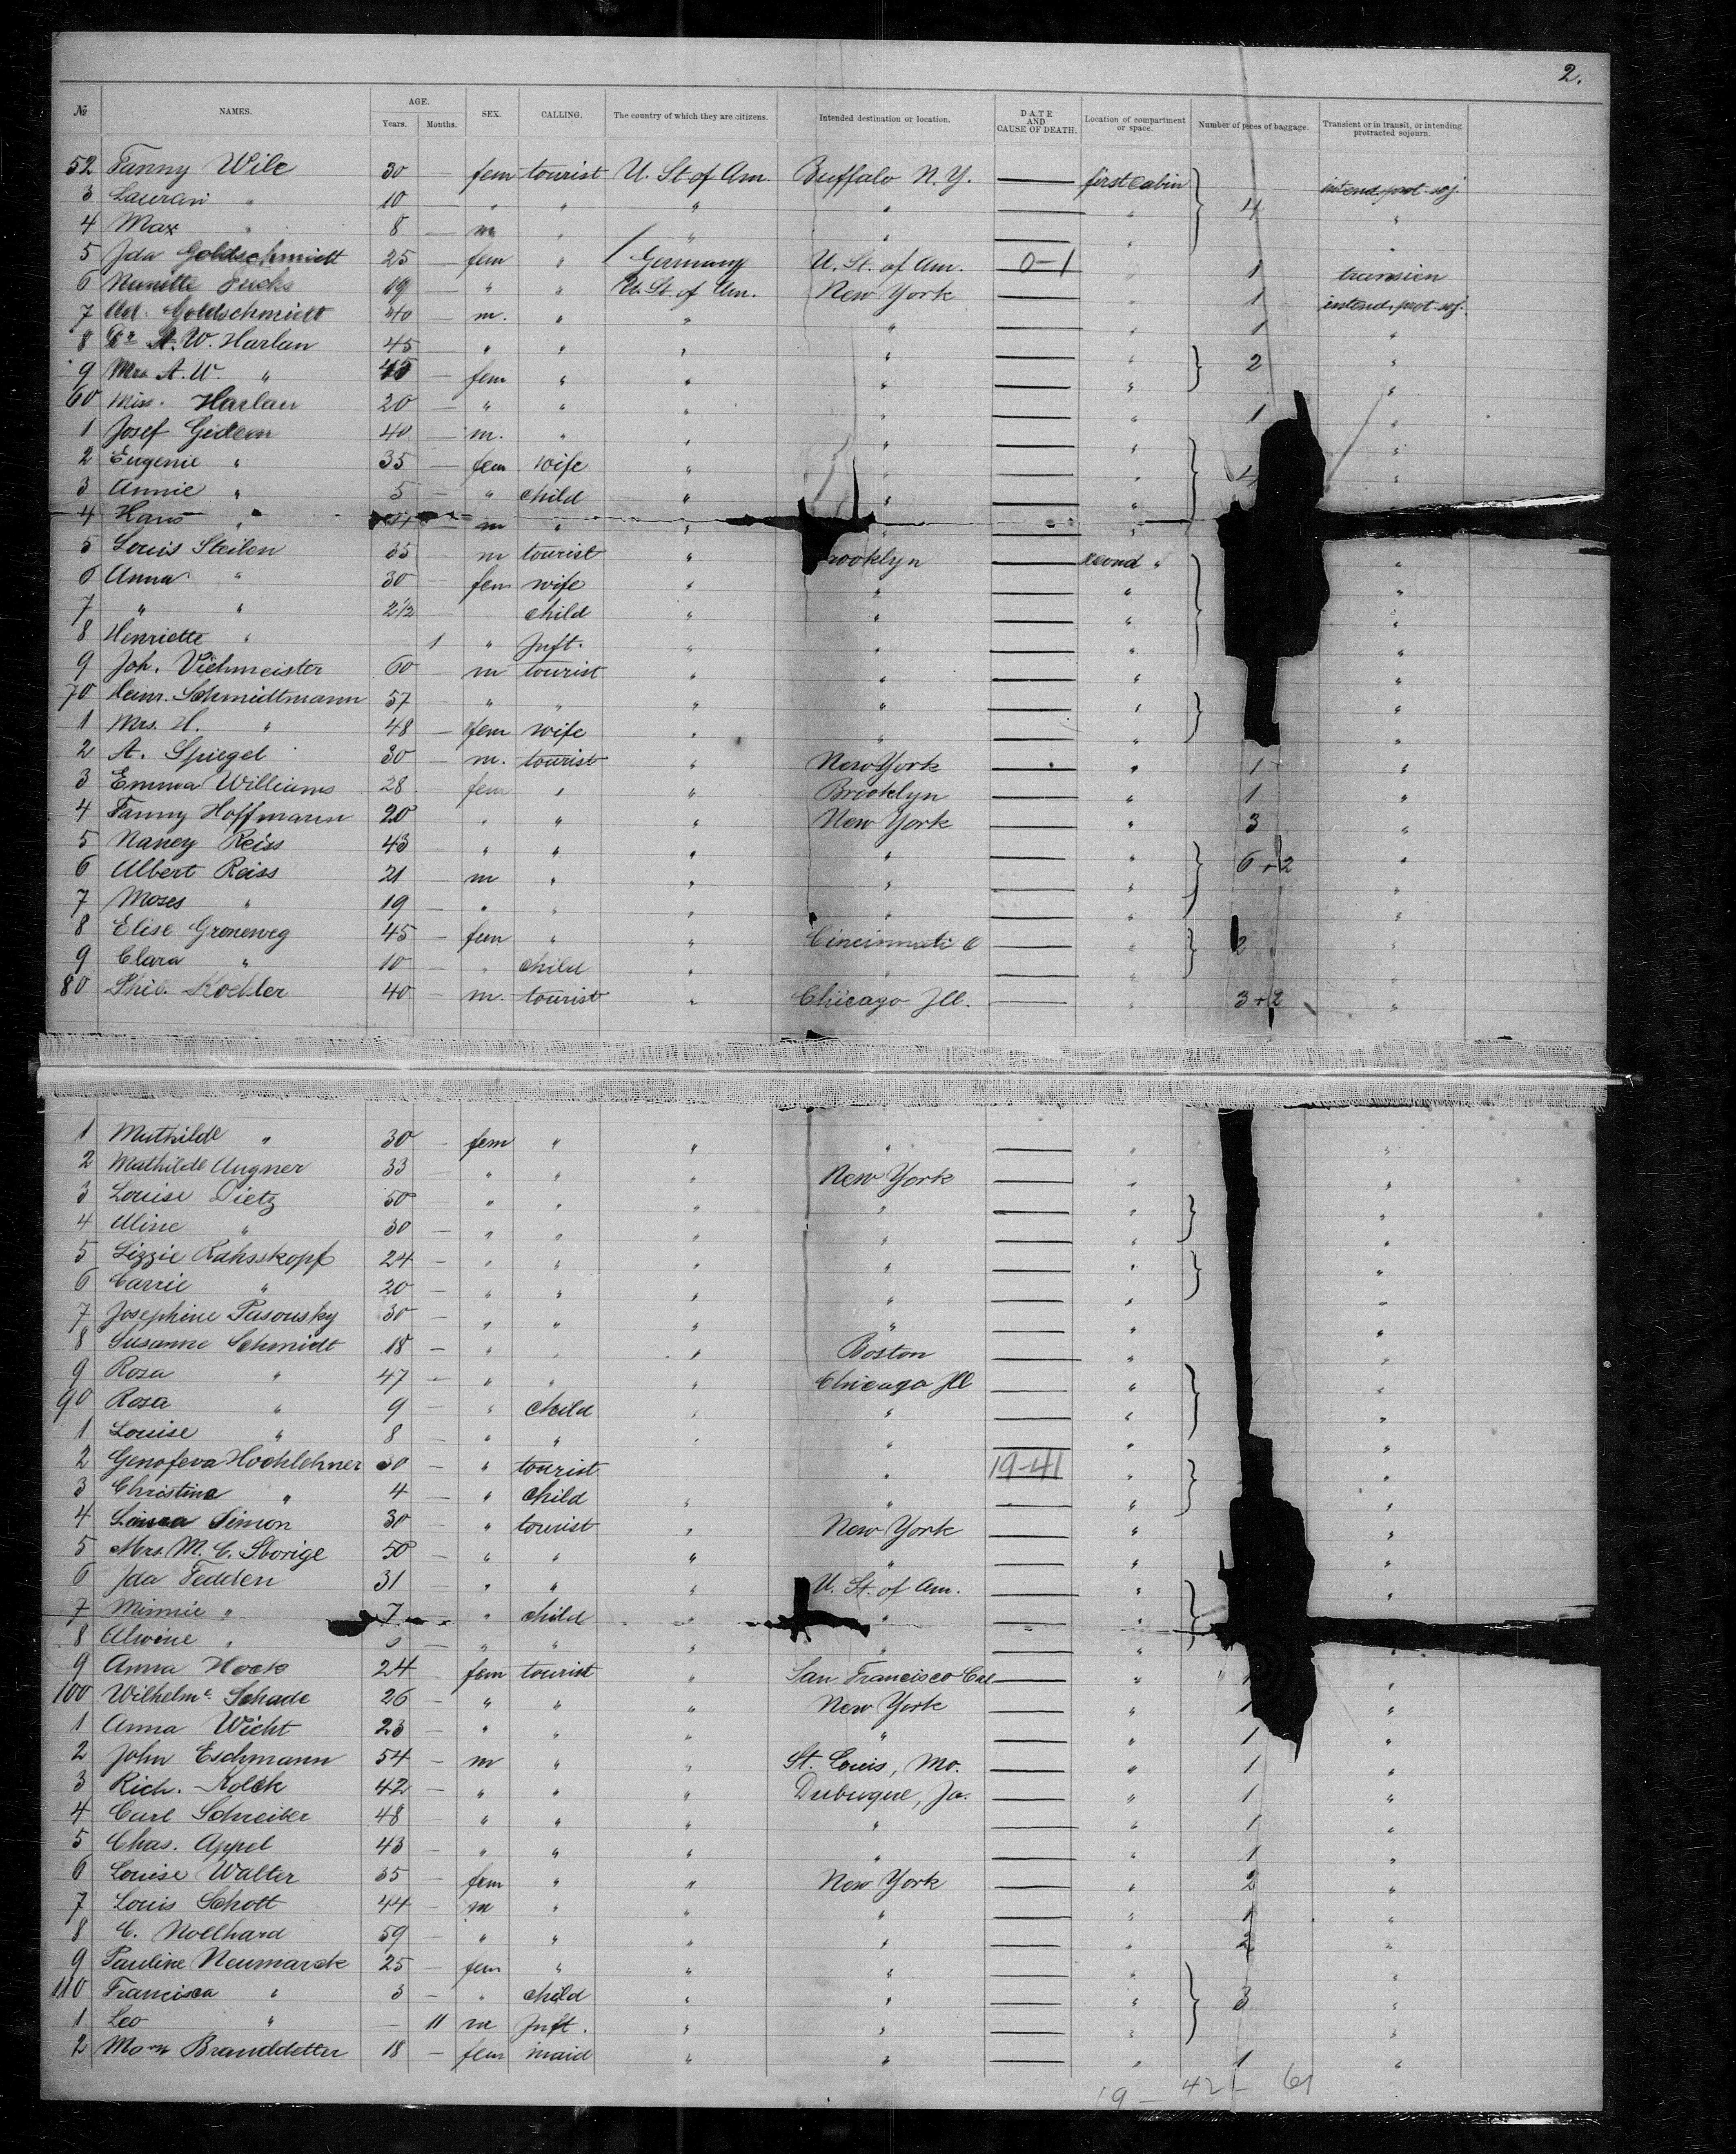 2.
№ NAMES. AGE. Years. Months. SEX. CALLING. The country of which they are citizens. Intended destination or location. DATE AND CAUSE OF DEATH. Location of compartment or space. Number of pieces of baggage. Transient or in transit, or intending protracted sojourn.
52 Fanny Wile 30 — fem tourist U. St of Am. Buffalo N.Y. — first cabin intend. prot. soj.
3 " 10 — " " " " — " 4 "
4 Max " 8 — m " " " — " "
5 Ida Goldschmidt 25 — fem " Germany U. St. of Am. 0-1 " 1 transien
6 Nanette Fuchs 19 — " " U. St. of Am. New York — " 1 intend. prot. soj.
7 Ad. Goldschmidt 40 — m. " " " — " 1 "
8 Dr A. W. Harlan 45 — " " " " — " 2 "
9 Mrs A. W. " 45 — fem " " " — " "
60 Miss. Harlan 20 — " " " " — " 1 "
1 Josef Gideon 40 — m. " " " — " "
2 Eugenie " 35 — fem wife " " — " 4 "
3 Annie " 5 — " child " " — "
4 Hans " — m " " " — "
5 Louis Steilen 35 m tourist " rooklyn — second " "
6 Anna " 30 fem wife " " — " "
7 " " 2 1/2 child " " — " "
8 Henriette " 1 " Inft. " " — " "
9 Joh. Viehmeister 60 m tourist " " — " "
70 Heinr. Schmidtmann 57 " " " " — " "
1 Mrs. H. " 48 — fem wife " " — " "
2 A. Spiegel 30 — m. tourist " New York — " 1 "
3 Emma Williams 28 fem " " Brooklyn — " 1 "
4 Fanny Hoffmann 20 " " " New York — " 3 "
5 Nancy Reiss 43 — " " " " — " 6+2 "
6 Albert Reiss 21 — m " " " — " "
7 Moses " 19 — " " " " — " "
8 Elise Groneweg 45 — fem " " Cincinnati O — " 2 "
9 Clara " 10 — " child " " — " "
80 Phil. Koehler 40 — m. tourist " Chicago Ill. — " 3+2 "
1 Mathilde " 30 — fem " " " — " "
2 Mathilde Augner 33 " " " New York — " "
3 Louise Dietz 50 — " " " " — " "
4 Aline " 30 — " " " " — " "
5 Lizzie Rahsskopf 24 — " " " " — " "
6 Carrie " 20 — " " " " — " "
7 Josephine Pasousky 30 — " " " " — " "
8 Susanne Schmidt 18 — " " " Boston — " "
9 Rosa " 47 — " " " Chicago Ill — " "
90 Rosa " 9 — " child " " — " "
1 Louise " 8 — " " " " — " "
2 Genofeva Hochlehner 30 — " tourist " 19-41 " "
3 Christine " 4 — " child " " — " "
4 Laura Simon 30 — " tourist " New York — " "
5 Mrs. M. C. 50 — " " " " — " "
6 Ida Fedden 31 " " " U. St. of Am. — " "
7 Minnie " 7 " child " " — "
8 Alwine " — " " " " — " "
9 Anna Hock 24 — fem tourist " San Francisco Cal — " 1 "
100 Wilhelme Schade 26 — " " " New York — " 1 "
1 Anna Wicht 23 — " " " " — " 1 "
2 John Eschmann 54 — m " " St. Louis, Mo. — " 1 "
3 Rich. Kolck 42 — " " " Dubuque, Ja. — " 1 "
4 Carl Schreiber 48 — " " " " — " 1 "
5 Chas. Appel 43 — " " " " — " 1 "
6 Louise Walter 35 — fem " " New York — " 2 "
7 Louis Schott 44 — m " " " — " 1 "
8 C. Nollhard 59 — " " " " — " 2 "
9 Pauline Neumarck 25 — fem " " " — " "
110 Francisca " 3 — " child " " — " 3 "
1 Leo " — 11 m Inft. " " — " "
2 Branddetter 18 — fem maid " " — " 1 "
19 — 42 — 61